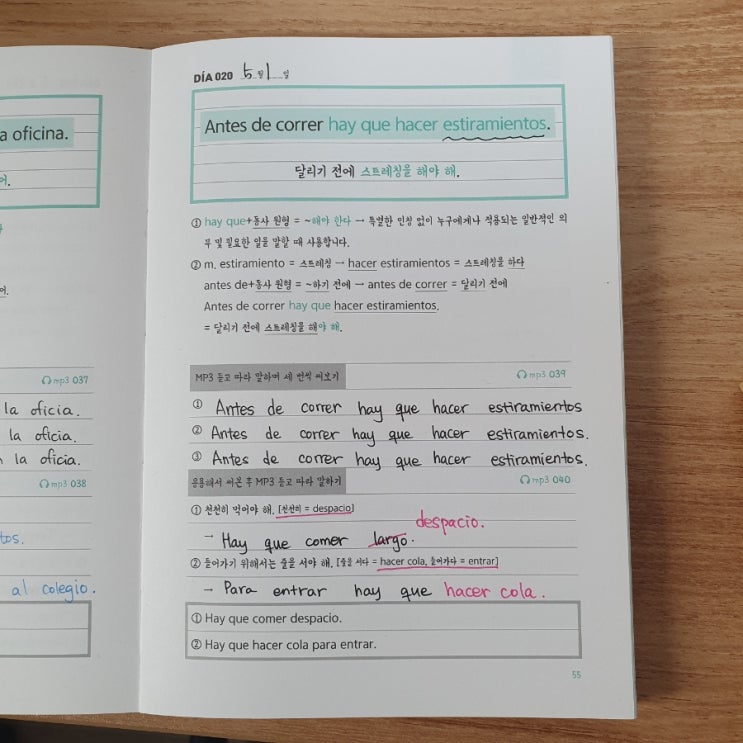 a oficina.
어.
어.
mp3 037
la oficia.
la oficia.
n la oficia.
mp3 038
tos.
al colegio.
DÍA 020 5월 1일
Antes de correr hay que hacer estiramientos.
달리기 전에 스트레칭을 해야 해.
① hay que+동사 원형 = ~해야 한다 → 특별한 인칭 없이 누구에게나 적용되는 일반적인 의
무 및 필요한 일을 말할 때 사용합니다.
② m. estiramiento = 스트레칭 → hacer estiramientos = 스트레칭을 하다
antes de+동사 원형 = ~하기 전에 → antes de correr = 달리기 전에
Antes de correr hay que hacer estiramientos.
= 달리기 전에 스트레칭을 해야 해.
MP3 듣고 따라 말하며 세 번씩 써보기
mp3 039
① Antes de correr hay que hacer estiramientos
② Antes de correr hay que hacer estiramientos.
③ Antes de correr hay que hacer estiramientos.
응용해서 써본 후 MP3 듣고 따라 말하기
mp3 040
① 천천히 먹어야 해. [천천히 = despacio]
despacio.
→ Hay que comer largo.
② 들어가기 위해서는 줄을 서야 해. [줄을 서다 = hacer cola, 들어가다 = entrar]
→ Para entrar hay que hacer cola.
① Hay que comer despacio.
② Hay que hacer cola para entrar.
55